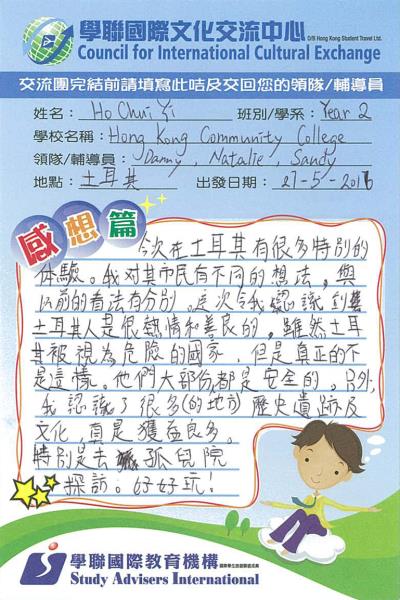 學聯國際文化交流中心
O/B Hong Kong Student Travel Ltd.
Council for International Cultural Exchange
交流團完結前請填寫此咭及交回您的領隊/輔導員
姓名：Ho Chui Yi 班別/學系：Year 2
學校名稱：Hong Kong Community College
領隊/輔導員：Danny, Natalie, Sandy
地點：土耳其 出發日期：27-5-2016
感想篇
今次在土耳其有很多特別的
体驗。我对其市民有不同的想法，與
以前的看法有分別。這次令我認識到
土耳其人是很熱情和善良的，雖然土耳
其被視為危險的國家，但是真正的不
是這樣。他們大部份都是安全的。另外，
我認識了很多(的地方)歷史遺跡及
文化，真是獲益良多。
特別是去孤兒院
探訪。好好玩！
學聯國際教育機構
Study Advisers International